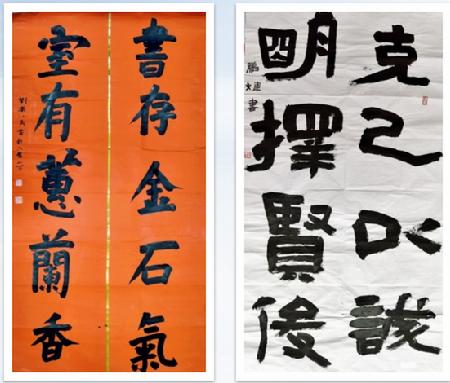 書存金石氣
室有蕙蘭香
克己以誠
明擇賢俊